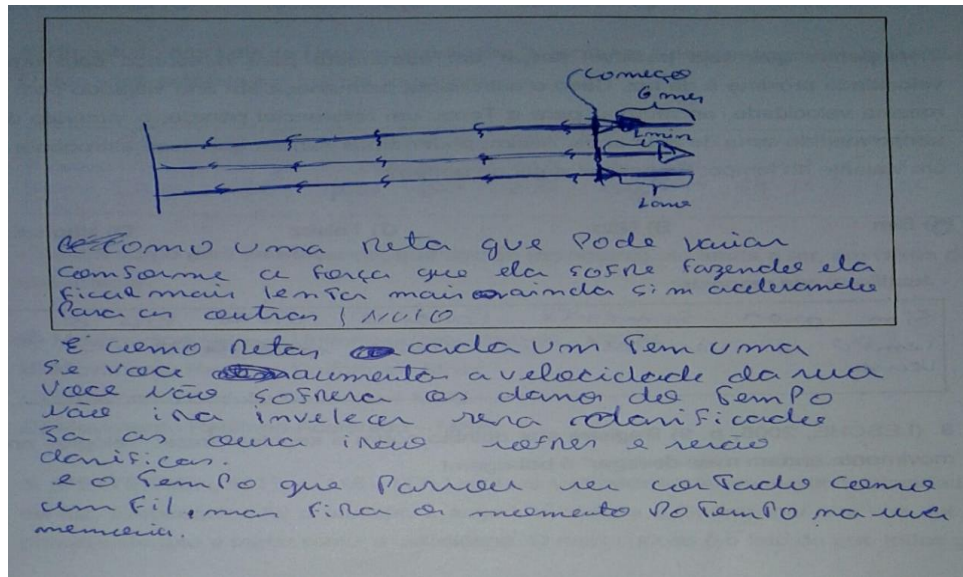 começo
6 mes
1 min
1 ano
como uma reta que pode variar
comforme a força que ela sofre fazendo ela
ficar mais lenta mais ainda sim acelerando
para as outras
E como retas cada um tem uma
se você aumenta a velocidade da sua
você não sofrera os dano do tempo
não ira invelecer sera danificado
Ja as outra irão sofrer e serão
danificas.
e o tempo que passou ser contado como
um fil, mas fira o momento do tempo na sua
memoria